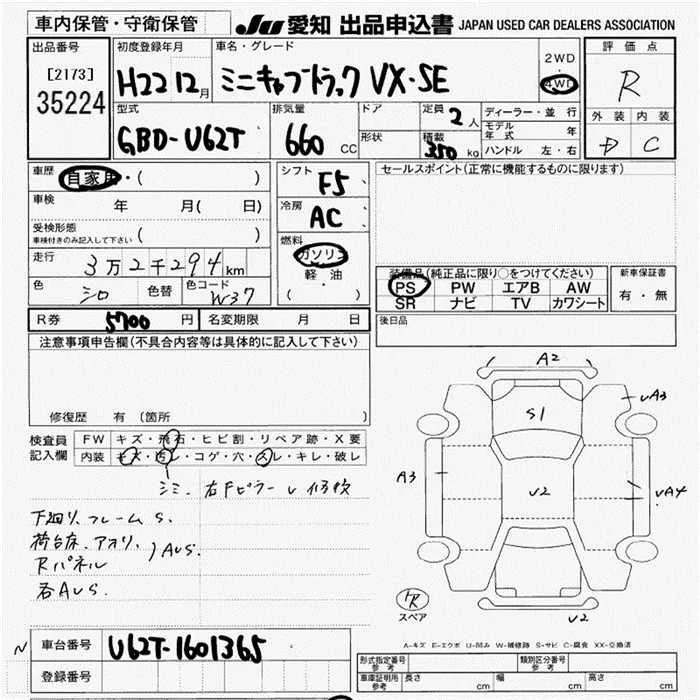 車内保管・守衛保管
JU 愛知 出品申込書 JAPAN USED CAR DEALERS ASSOCIATION
出品番号
[2173]
35224
初度登録年月
H22 12月
車名・グレード
ミニキャブトラック VX-SE
2WD
4WD
評価点
R
外装 内装
D C
型式
GBD-U62T
排気量
660 CC
ドア
形状
定員 2人
積載 350 kg
ディーラー・並行
モデル年式 年
ハンドル 左・右
車歴
自家用・( )
車検 年 月( 日)
受検形態
車検付きのみ記入して下さい ( )
走行 3万2千294km
色 シロ 色替 色コード W37
シフト F5
冷房 AC
燃料
ガソリン
軽油
( ・ )
セールスポイント(正常に機能するものに限ります)
装備品(純正品に限り○をつけてください)
PS PW エアB AW
SR ナビ TV カワシート
新車保証書
有・無
R券 5700円 名変期限 月 日
後日品
注意事項申告欄(不具合内容等は具体的に記入して下さい)
修復歴 有(箇所
検査員記入欄
FW キズ・飛石・ヒビ割・リペア跡・X要
内装 キズ・汚レ・コゲ・穴・スレ・キレ・破レ
シミ. 右Fピラー
下廻り、フレーム S.
荷台床、アオリ、
Rパネル
)AUS.
各AUS.
A2
S1
UA3
A3
U2
UA4
U2
R
スペア
A-キズ E-エクボ U-凹み W-補修跡 S-サビ C-腐食 XX-交換済
N
車台番号 U62T-1601365
登録番号
形式指定番号
参考
類別区分番号
参考
車庫証明用
参考
長さ cm 幅 cm 高さ cm